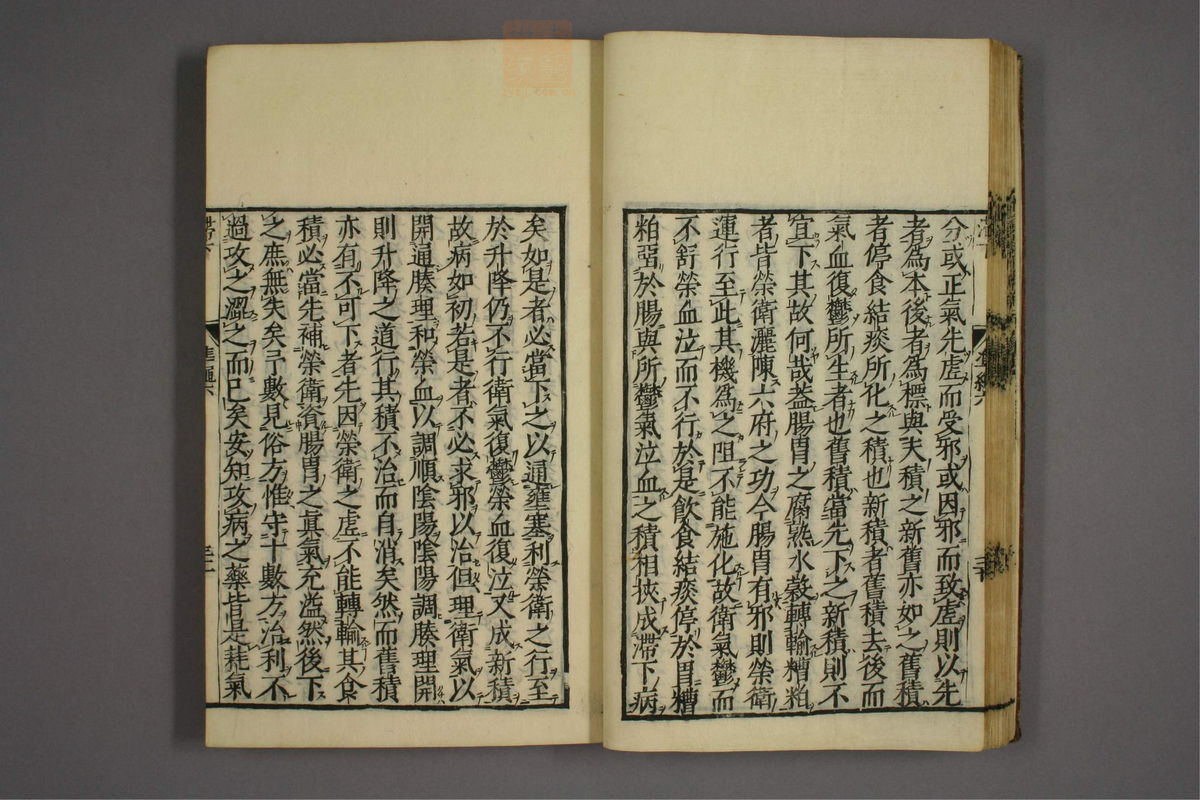 分或正氣先虛而受邪或因邪而致虛則以先
者爲本後者爲標與夫積之新舊亦如之舊積
者停食結痰所化之積也新積者舊積去後而
氣血復鬱所生者也舊積當先下之新積則不
宜下其故何哉蓋腸胃之腐熟水穀轉輸糟粕
者皆榮衛灑陳六府之功今腸胃有邪則榮衛
運行至此其機爲之阻不能施化故衛氣鬱而
不舒榮血泣而不行於是飲食結痰停於胃糟
粕留於腸與所鬱氣泣血之積相挾成滯下病
矣如是者必當下之以通壅塞利榮衛之行至
於升降仍不行衛氣復鬱榮血復泣又成新積
故病如初若是者不必求邪以治但理衛氣以
開通腠理和榮血以調順陰陽陰陽調腠理開
則升降之道行其積不治而自消矣然而舊積
亦有不可下者先因榮衛之虛不能轉輸其食
積必當先補榮衛資腸胃之真氣充溢然後下
之庶無失矣予數見俗方惟守十數方治利不
過攻之澀之而已矣安知攻病之藥皆是耗氣